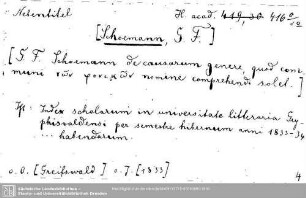 Nebentitel H. acad. 419, 30. 416
[Schoemann, G. F.]
[G. F. Schoemann de causarum genere, quod com-
muni nomine comprehendi solet.]
Index scholarum in universitate litteraria Gry-
phisvaldensi per semestre hibernum anni 1833-34
... habendarum.
o. O. [Greifswald] o. J. [1833] 4
Sächsische Landesbibliothek -
Staats- und Universitätsbibliothek Dresden